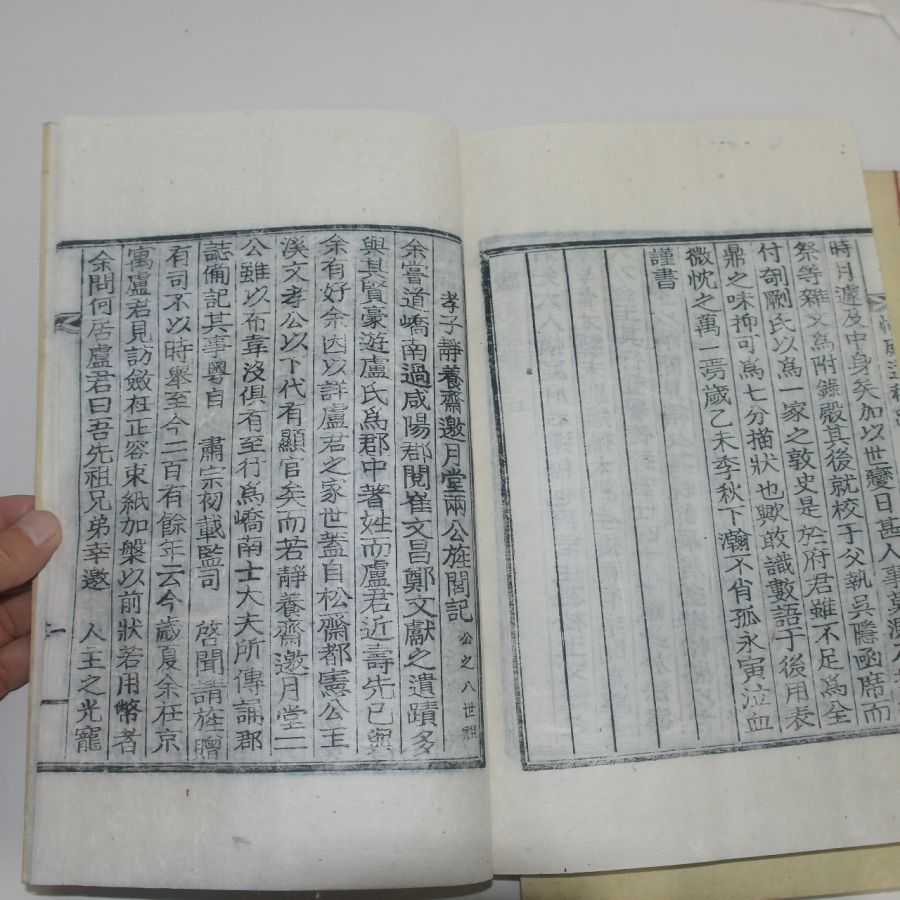 時月遽及中身矣加以世變日甚人事莫
祭等雜文為附錄殿其後就校于父執吳隱函席而
付剞劂氏以為一家之敦史是於府君雖不足為全
鼎之味抑可為七分描狀也歟敢識數語于後用表
微忱之萬一焉歲乙未季秋下瀚不肖孤永寅泣血
謹書
孝子靜養齋邀月堂兩公旌閭記 公之八世祖
余嘗道嶠南過咸陽郡閱崔文昌鄭文獻之遺蹟多
與其賢豪遊盧氏為郡中著姓而盧君近壽先已與
余有好余因以詳盧君之家世蓋自松齋都憲公玉
溪文孝公以下代有顯官矣而若靜養齋邀月堂二
公雖以布韋沒俱有至行為嶠南士大夫所傳誦郡
誌備記其事粵自 肅宗初載監司 啓聞請旌贈
有司不以時舉至今二百有餘年云今歲夏余在京
寓盧君見訪斂衽正容束紙加槃以前狀若用幣者
余問何居盧君曰吾先祖兄弟幸邀 人主之光寵